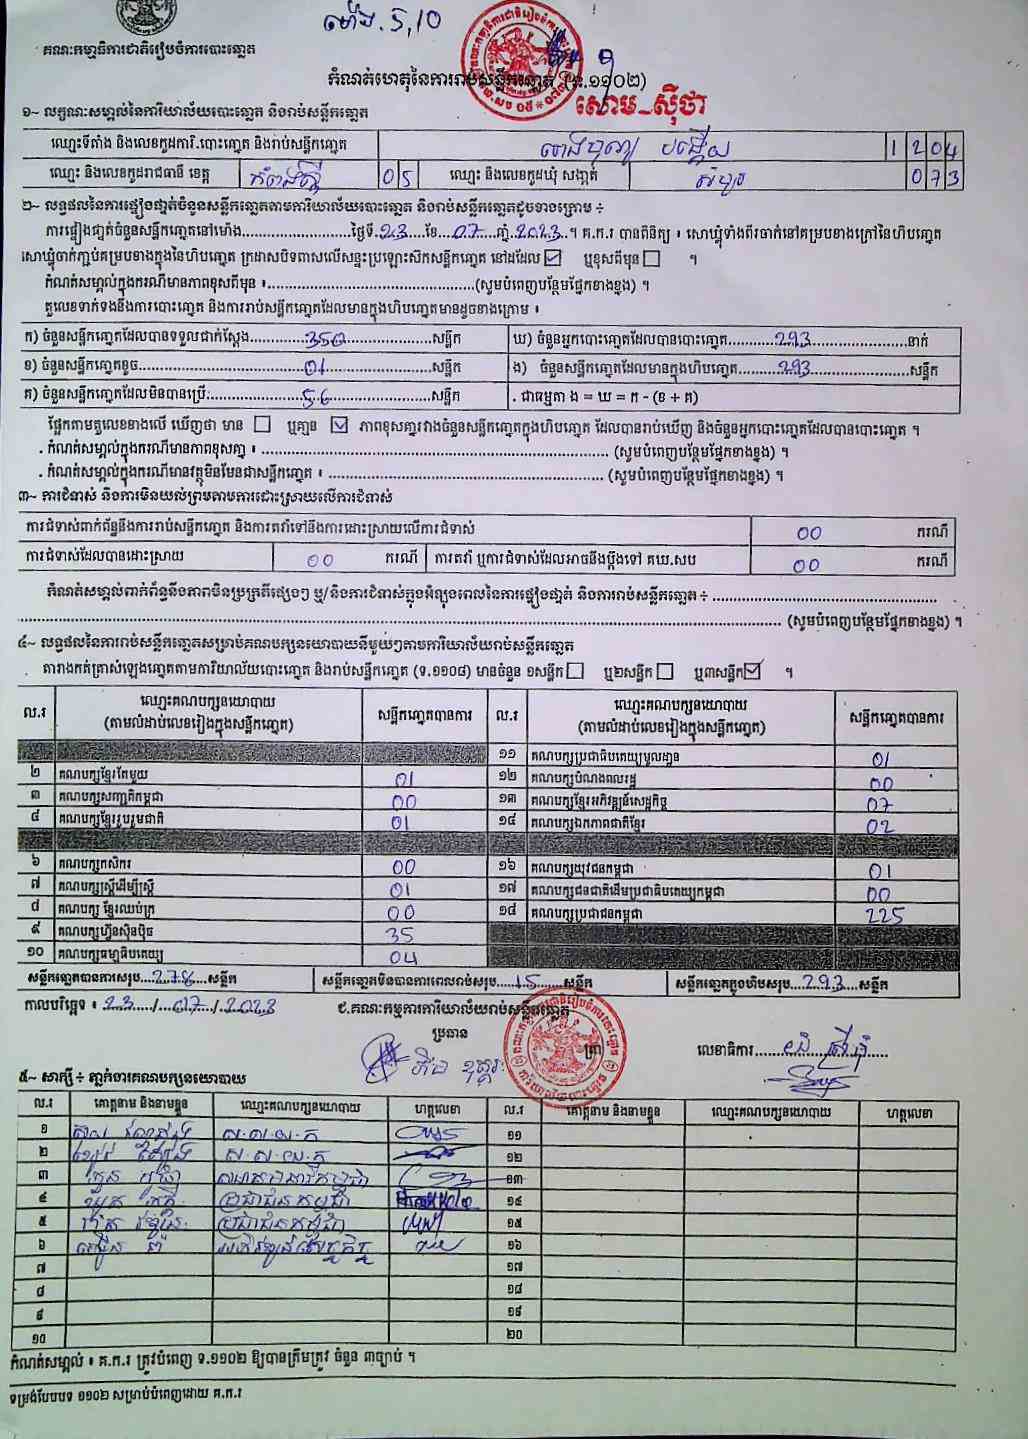 ម៉ោង.5,10
គណៈកម្មាធិការជាតិរៀបចំការបោះឆ្នោត
កំណត់ហេតុនៃការរាប់សន្លឹកឆ្នោត (ទ.១១០២)
សោម-ស៊ីថា
១~ លក្ខណៈសម្គាល់នៃការិយាល័យបោះឆ្នោត និងរាប់សន្លឹកឆ្នោត
ឈ្មោះទីតាំង និងលេខកូដការិ.បោះឆ្នោត និងរាប់សន្លឹកឆ្នោត 1204
ឈ្មោះ និងលេខកូដរាជធានី ខេត្ត កំពង់ស្ពឺ 05 ឈ្មោះ និងលេខកូដឃុំ សង្កាត់ 073
២~ លទ្ធផលនៃការផ្ទៀងផ្ទាត់ចំនួនសន្លឹកឆ្នោតតាមការិយាល័យបោះឆ្នោត និងរាប់សន្លឹកឆ្នោតដូចខាងក្រោម ÷
ការផ្ទៀងផ្ទាត់ចំនួនសន្លឹកឆ្នោតនៅម៉ោង..........ថ្ងៃទី.23...ខែ.07...ឆ្នាំ.2023..។ គ.ក.រ បានពិនិត្យ ៖ សោឃ្លុំទាំងពីរចាក់នៅគម្របខាងក្រៅនៃហិបឆ្នោត
សោឃ្លុំចាក់ភ្ជាប់គម្របខាងក្នុងនៃហិបឆ្នោត ក្រដាសបិទពាសលើសន្ទះប្រឡោះស៊ីកសន្លឹកឆ្នោត នៅដដែល ☑ ឬខុសពីមុន ☐ ។
កំណត់សម្គាល់ក្នុងករណីមានភាពខុសពីមុន ៖..........(សូមបំពេញបន្ថែមផ្នែកខាងខ្នង) ។
តួលេខទាក់ទងនឹងការបោះឆ្នោត និងការរាប់សន្លឹកឆ្នោតដែលមានក្នុងហិបឆ្នោតមានដូចខាងក្រោម ៖
ក) ចំនួនសន្លឹកឆ្នោតដែលបានទទួលជាក់ស្តែង..........350..........សន្លឹក ឃ) ចំនួនអ្នកបោះឆ្នោតដែលបានបោះឆ្នោត..........293..........នាក់
ខ) ចំនួនសន្លឹកឆ្នោតខូច..........01..........សន្លឹក ង) ចំនួនសន្លឹកឆ្នោតដែលមានក្នុងហិបឆ្នោត..........293..........សន្លឹក
គ) ចំនួនសន្លឹកឆ្នោតដែលមិនបានប្រើ..........56..........សន្លឹក . ជាធម្មតា ង = ឃ = ក - (ខ + គ)
ផ្អែកតាមតួលេខខាងលើ ឃើញថា មាន ☐ ឬគ្មាន ☑ ភាពខុសគ្នារវាងចំនួនសន្លឹកឆ្នោតក្នុងហិបឆ្នោត ដែលបានរាប់ឃើញ និងចំនួនអ្នកបោះឆ្នោតដែលបានបោះឆ្នោត ។
. កំណត់សម្គាល់ក្នុងករណីមានភាពខុសគ្នា ៖ .......... (សូមបំពេញបន្ថែមផ្នែកខាងខ្នង) ។
. កំណត់សម្គាល់ក្នុងករណីមានវត្ថុមិនមែនជាសន្លឹកឆ្នោត ៖ .......... (សូមបំពេញបន្ថែមផ្នែកខាងខ្នង) ។
៣~ ការជំទាស់ និងការមិនយល់ព្រមតាមការដោះស្រាយលើការជំទាស់
ការជំទាស់ពាក់ព័ន្ធនឹងការរាប់សន្លឹកឆ្នោត និងការតវ៉ាទៅនឹងការដោះស្រាយលើការជំទាស់ 00 ករណី
ការជំទាស់ដែលបានដោះស្រាយ 00 ករណី ការតវ៉ា ឬការជំទាស់ដែលអាចនឹងប្តឹងទៅ គឃ.សប 00 ករណី
កំណត់សម្គាល់ពាក់ព័ន្ធនឹងភាពមិនប្រក្រតីផ្សេងៗ ឬ/និងការជំទាស់ក្នុងអំឡុងពេលនៃការផ្ទៀងផ្ទាត់ និងការរាប់សន្លឹកឆ្នោត ÷ ..........
.......... (សូមបំពេញបន្ថែមផ្នែកខាងខ្នង) ។
៤~ លទ្ធផលនៃការរាប់សន្លឹកឆ្នោតសម្រាប់គណបក្សនយោបាយនីមួយៗតាមការិយាល័យរាប់សន្លឹកឆ្នោត
តារាងកត់ត្រាសំឡេងឆ្នោតតាមការិយាល័យបោះឆ្នោត និងរាប់សន្លឹកឆ្នោត (ទ.១១០៨) មានចំនួន ១សន្លឹក ☐ ឬ២សន្លឹក ☐ ឬ៣សន្លឹក ☑ ។
ល.រ ឈ្មោះគណបក្សនយោបាយ (តាមលំដាប់លេខរៀងក្នុងសន្លឹកឆ្នោត) សន្លឹកឆ្នោតបានការ ល.រ ឈ្មោះគណបក្សនយោបាយ (តាមលំដាប់លេខរៀងក្នុងសន្លឹកឆ្នោត) សន្លឹកឆ្នោតបានការ
១១ គណបក្សប្រជាធិបតេយ្យមូលដ្ឋាន 01
២ គណបក្សខ្មែរតែមួយ 01 ១២ គណបក្សបំណងពលរដ្ឋ 00
៣ គណបក្សសញ្ជាតិកម្ពុជា 00 ១៣ គណបក្សខ្មែរអភិវឌ្ឍន៍សេដ្ឋកិច្ច 07
៤ គណបក្សខ្មែររួបរួមជាតិ 01 ១៤ គណបក្សឯកភាពជាតិខ្មែរ 02
៦ គណបក្សកសិករ 00 ១៦ គណបក្សយុវជនកម្ពុជា 01
៧ គណបក្សស្ត្រីដើម្បីស្ត្រី 01 ១៧ គណបក្សជនជាតិដើមប្រជាធិបតេយ្យកម្ពុជា 00
៨ គណបក្ស ខ្មែរឈប់ក្រ 00 ១៨ គណបក្សប្រជាជនកម្ពុជា 225
៩ គណបក្សហ៊្វុនស៊ិនប៉ិច 35
១០ គណបក្សធម្មាធិបតេយ្យ 04
សន្លឹកឆ្នោតបានការសរុប....278....សន្លឹក សន្លឹកឆ្នោតមិនបានការពេលរាប់សរុប....15....សន្លឹក សន្លឹកឆ្នោតក្នុងហិបសរុប....293....សន្លឹក
កាលបរិច្ឆេទ ៖ 23../..07../..2023 ជ.គណៈកម្មការការិយាល័យរាប់សន្លឹកឆ្នោត
ប្រធាន ត្រា លេខាធិការ..........
៥~ សាក្សី ÷ ភ្នាក់ងារគណបក្សនយោបាយ
ល.រ គោត្តនាម និងនាមខ្លួន ឈ្មោះគណបក្សនយោបាយ ហត្ថលេខា ល.រ គោត្តនាម និងនាមខ្លួន ឈ្មោះគណបក្សនយោបាយ ហត្ថលេខា
១ ១១
២ ១២
៣ ១៣
៤ ប្រជាជនកម្ពុជា ១៤
៥ ប្រជាជនកម្ពុជា ១៥
៦ ១៦
៧ ១៧
៨ ១៨
៩ ១៩
១០ ២០
កំណត់សម្គាល់ ៖ គ.ក.រ ត្រូវបំពេញ ទ.១១០២ ឱ្យបានត្រឹមត្រូវ ចំនួន ៣ច្បាប់ ។
ទម្រង់បែបបទ ១១០២ សម្រាប់បំពេញដោយ គ.ក.រ